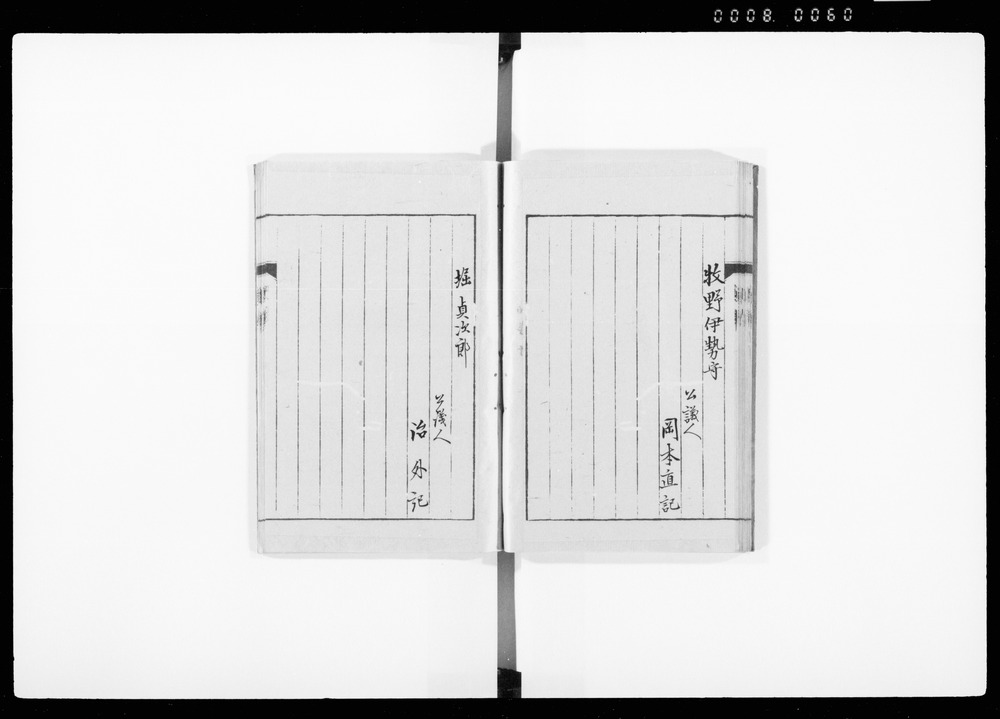 0008.0060
牧野伊勢守
公議人
岡本直記
堀貞次郎
公議人
治外記